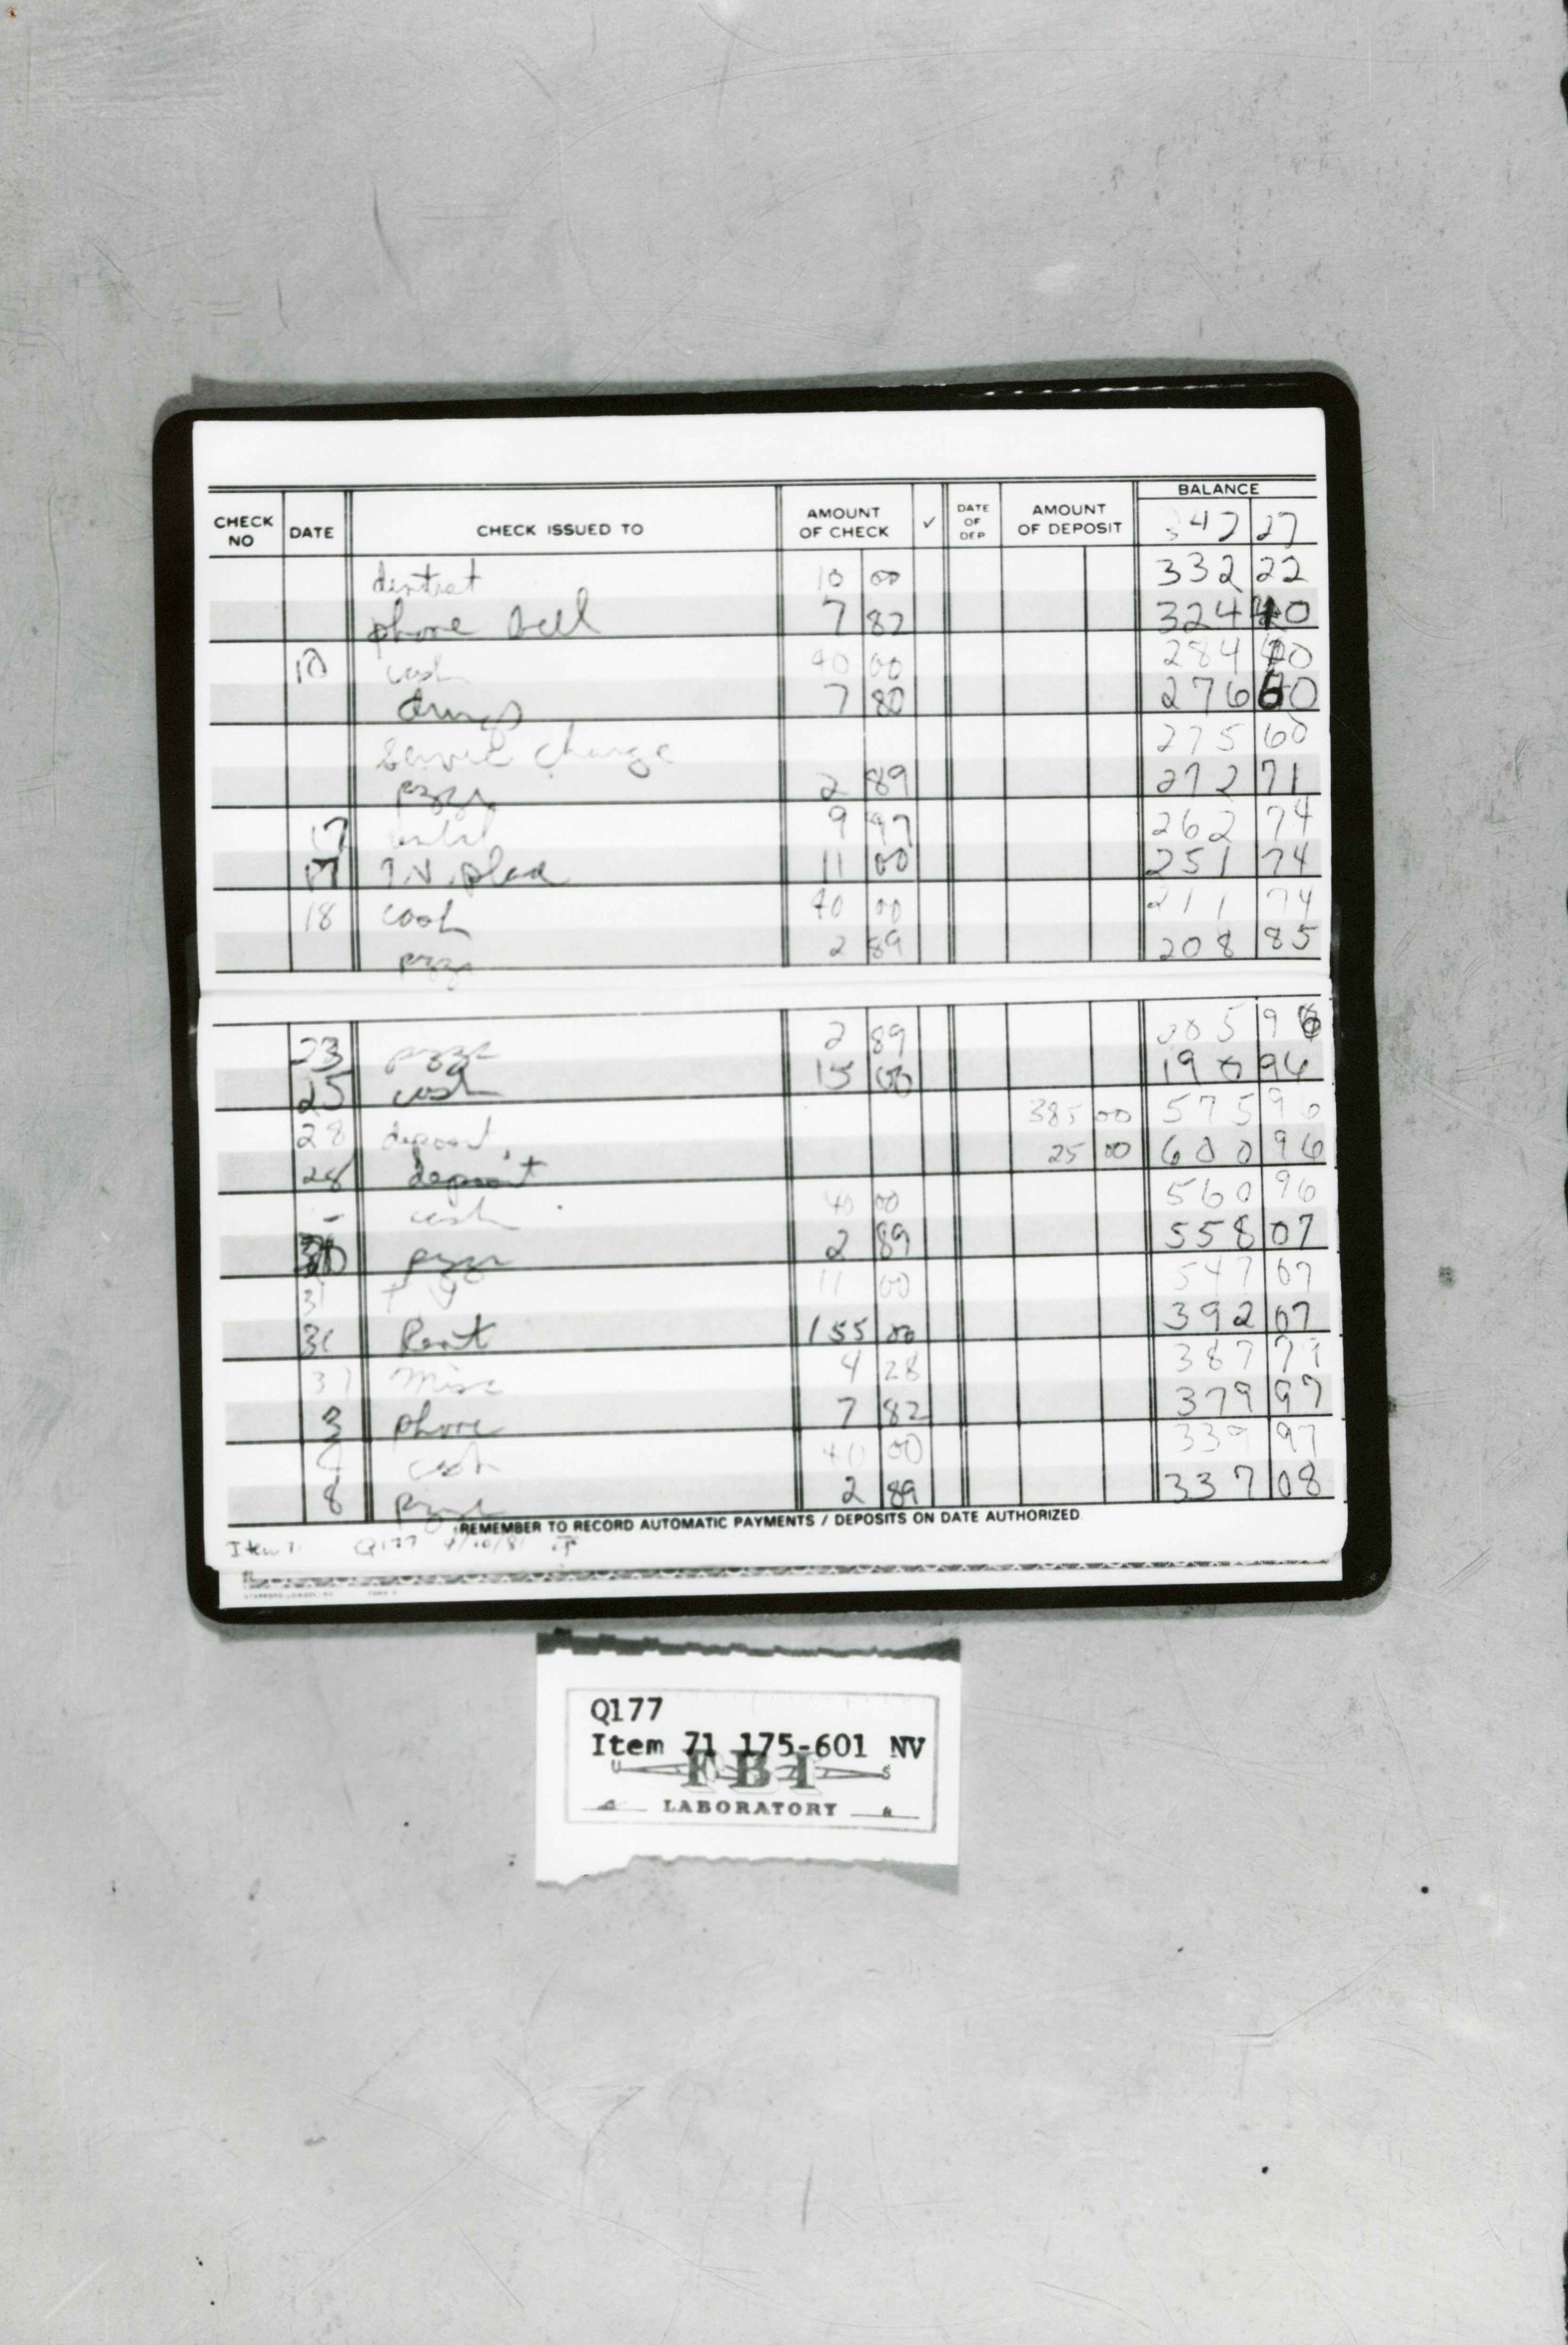 BALANCE
CHECK NO DATE CHECK ISSUED TO AMOUNT OF CHECK ✓ DATE OF DEP AMOUNT OF DEPOSIT 342 27
dentist 10 00 332 22
phone bill 7 82 324 40
10 cash 40 00 284 40
drugs 7 80 276 60
service charge 275 60
pizza 2 89 272 71
17 9 97 262 74
17 T.V. place 11 00 251 74
18 cash 40 00 211 74
pizza 2 89 208 85
23 pizza 2 89 205 96
25 cash 15 00 190 96
28 deposit 385 00 575 96
28 deposit 25 00 600 96
- cash 40 00 560 96
30 pizza 2 89 558 07
31 TV 11 00 547 07
31 Rent 155 00 392 07
31 misc 4 28 387 79
3 phone 7 82 379 97
cash 40 00 339 97
8 pizza 2 89 337 08
REMEMBER TO RECORD AUTOMATIC PAYMENTS / DEPOSITS ON DATE AUTHORIZED.
Item 71 Q177 4/10/81
Q177
Item 71 175-601 NV
U S
FBI
LABORATORY